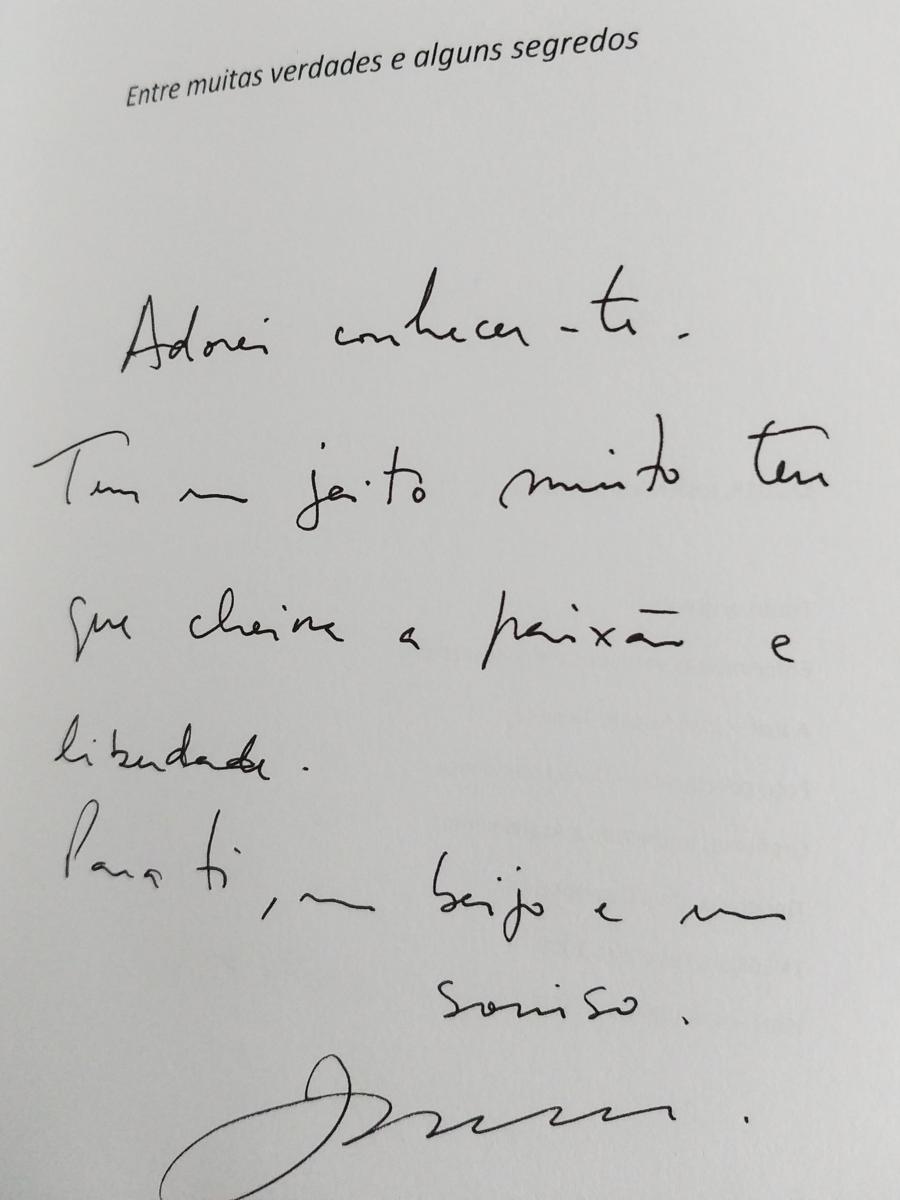 Entre muitas verdades e alguns segredos
Adorei conhecer-te.
Tens um jeito muito teu
que cheira a paixão e
liberdade.
Para ti, um beijo e um
sorriso.